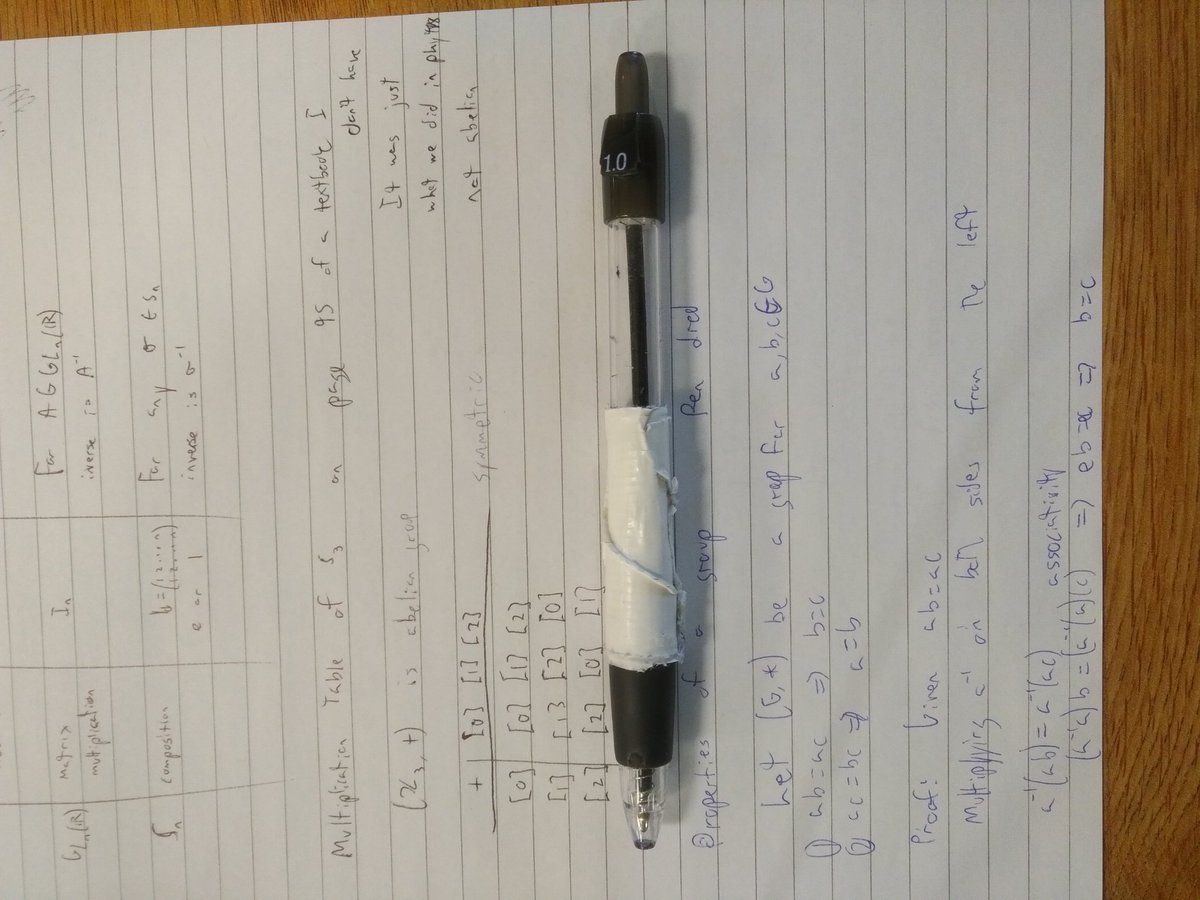 GLn(ℝ) matrix mutiplication In For A G GLn(ℝ) inverse is A⁻¹
Sn composition b=(1 2 ... n) (1 2 ... n) e or 1 For any σ ∈ Sn inverse is σ⁻¹
Multiplication Table of S3 on page 95 of a textbook I don't have
(ℤ3, +) is abelian group It was just what we did in phy
+ [0] [1] [2] symmetric not abelian
[0] [0] [1] [2]
[1] [1] [2] [0]
[2] [2] [0] [1]
1.0
properties of a group Pen died
Let (G, *) be a group for a, b, c ∈ G
① ab=ac ⇒ b=c
② ac=bc ⇒ a=b
Proof: Given ab=ac
Multipying a⁻¹ on both sides from the left
a⁻¹(ab) = a⁻¹(ac) associativity
(a⁻¹a)b = (a⁻¹a)(c) ⇒ eb=e ⇒ b=c